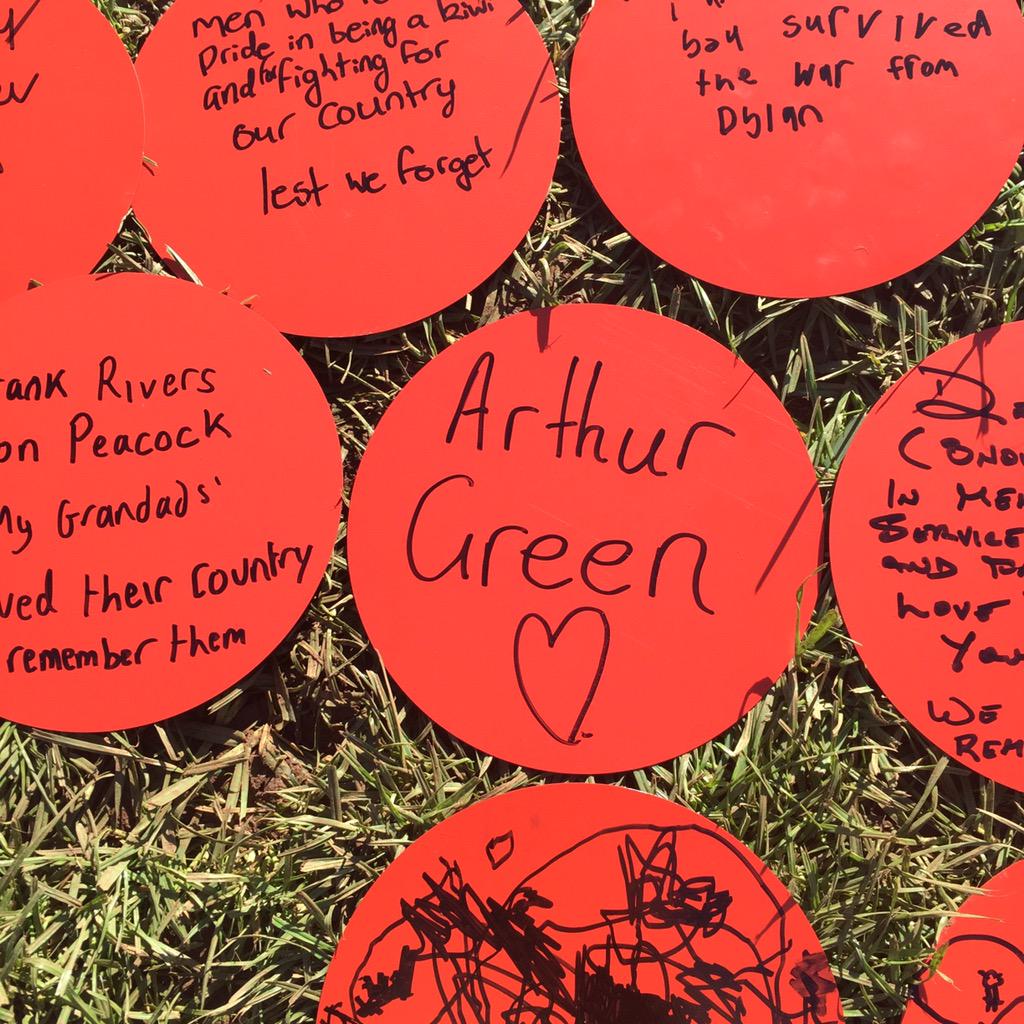 men who
Pride in being a kiwi
and for fighting for
our country
lest we forget
boy survived
the war from
Dylan
Rivers
Peacock
My Grandads'
their country
remember them
Arthur
Green
IN
SERVICE
AND
LOVE
WE